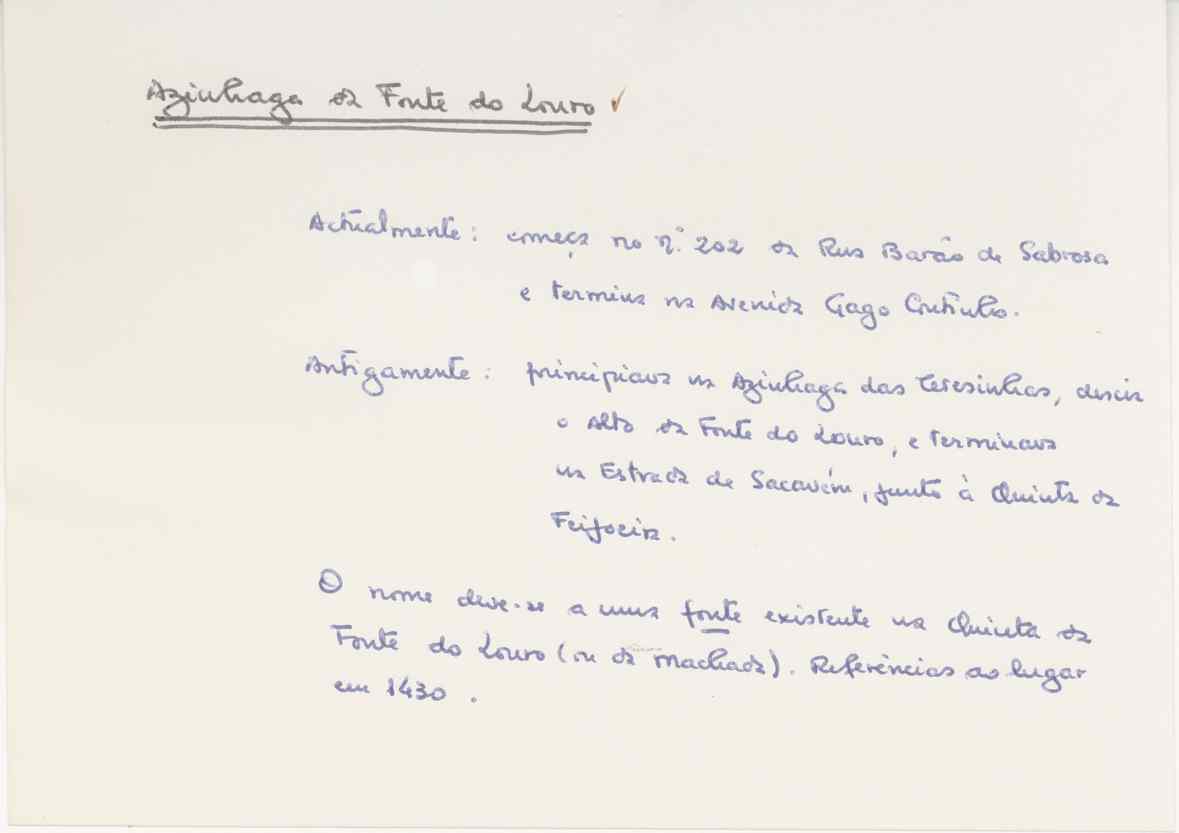 Azinhaga da Fonte do Louro ✓
Actualmente: começa no nº. 202 da Rua Barão de Sabrosa
e termina na Avenida Gago Coutinho.
Antigamente: principiava na Azinhaga das Teresinhas, descia
o Alto da Fonte do Louro, e terminava
na Estrada de Sacavém, junto à Quinta da
Feijoeira.
O nome deve-se a uma fonte existente na Quinta da
Fonte do Louro (ou da Machada). Referências ao lugar
em 1430.